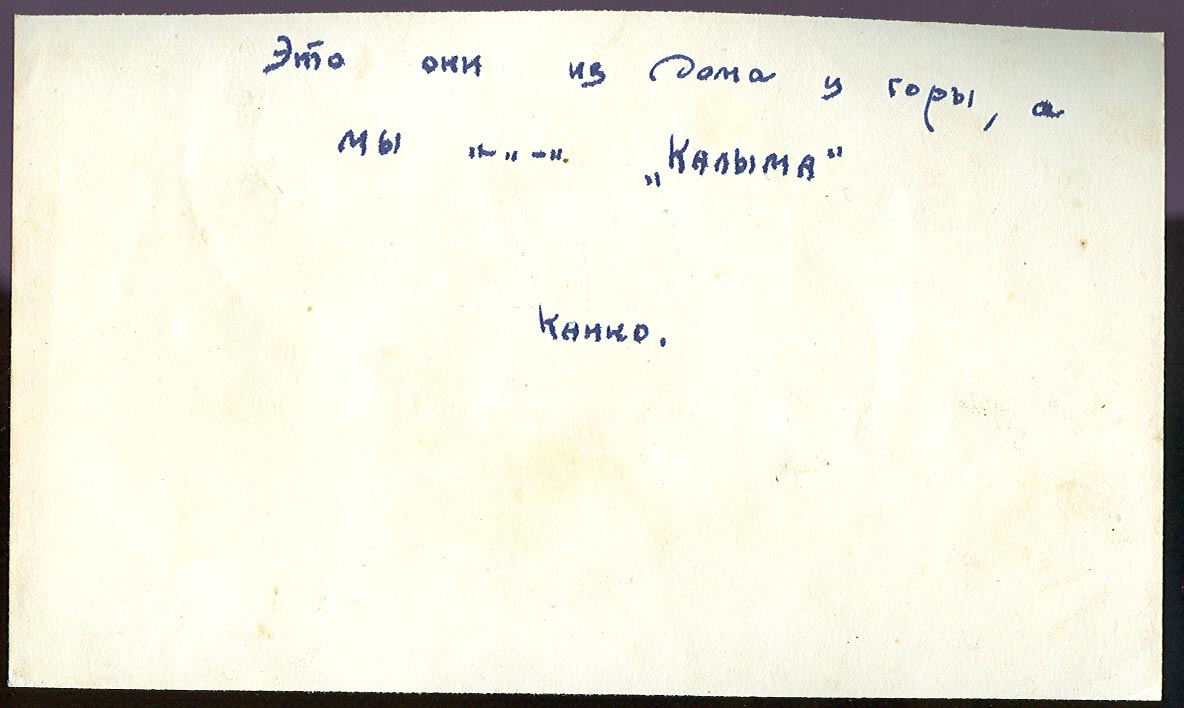 Это они из дома у горы, а
мы „–„–„ „Калыма“
Канко.